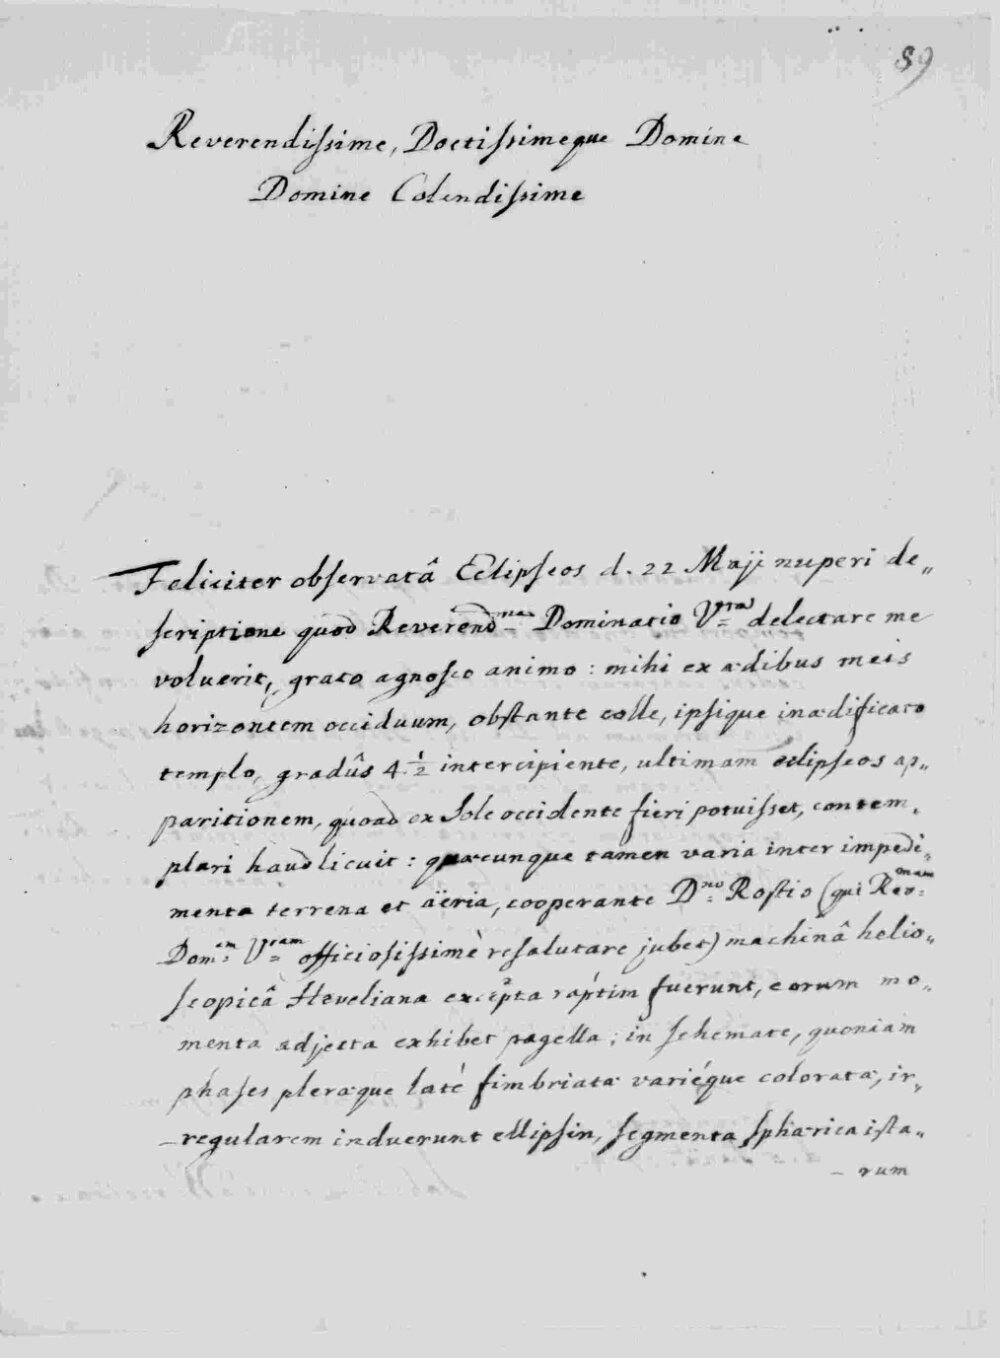 89
Reverendissime, Doctissimeque Domine
Domine Colendissime
Feliciter observatâ Eclipseos d. 22 Maji nuperi de„
scriptione quod Reverend.ma Dominatio V.ra delectare me
voluerit, grato agnosco animo : mihi ex ædibus meis
horizontem occiduum, obstante colle, ipsique inædificato
templo, gradûs 4. 1/2 intercipiente, ultimam eclipseos ap„
paritionem, quoad ex Sole occidente fieri potuisset, contem„
plari haud licuit : quæcunque tamen varia inter impedi„
menta terrena et aëria, cooperante D.no Rostio (qui Rev:mam
Dom:em V.ram officiosissimè resalutare jubet) machinâ helio„
scopicâ Heveliana excepta raptim fuerunt, eorum mo„
menta adjecta exhibet pagella ; in schemate, quoniam
phases pleræque laté fimbriatæ variéque coloratæ, ir„
regularem induerunt ellipsin, segmenta sphærica ista„
rum